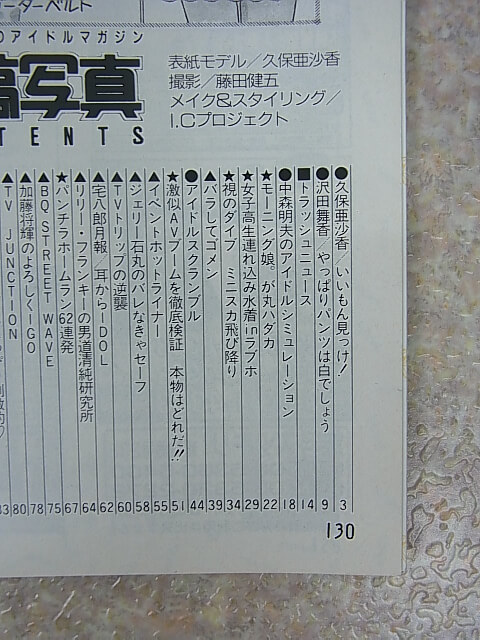 ーターベルト
のアイドルマガジン
稿写真
TENTS
表紙モデル／久保亜沙香
撮影／藤田健五
メイク&スタイリング／
I.Cプロジェクト
●久保亜沙香／いいもん見っけ！ 3
●沢田舞香／やっぱりパンツは白でしょう 9
■トラッシュニュース 14
●中森明夫のアイドルシミュレーション 18
★モーニング娘。が丸ハダカ 22
★女子高生連れ込み水着inラブホ 29
★視のダイブ ミニスカ飛び降り 34
▲バラしてゴメン 39
●アイドルスクランブル 44
★激似AVブームを徹底検証 本物はどれだ!! 51
▲イベントホットライナー 55
▲ジェリー石丸のバレなきゃセーフ 58
▲TVトリップの逆襲 60
▲宅八郎月報／耳からIDOL 62
▲リリー・フランキーの男道清純研究所 64
★パンチラホームラン62連発 67
▲BQ STREET WAVE 75
▲加藤将輝のよろしくIGO 78
▲TV JUNCTION 80
130